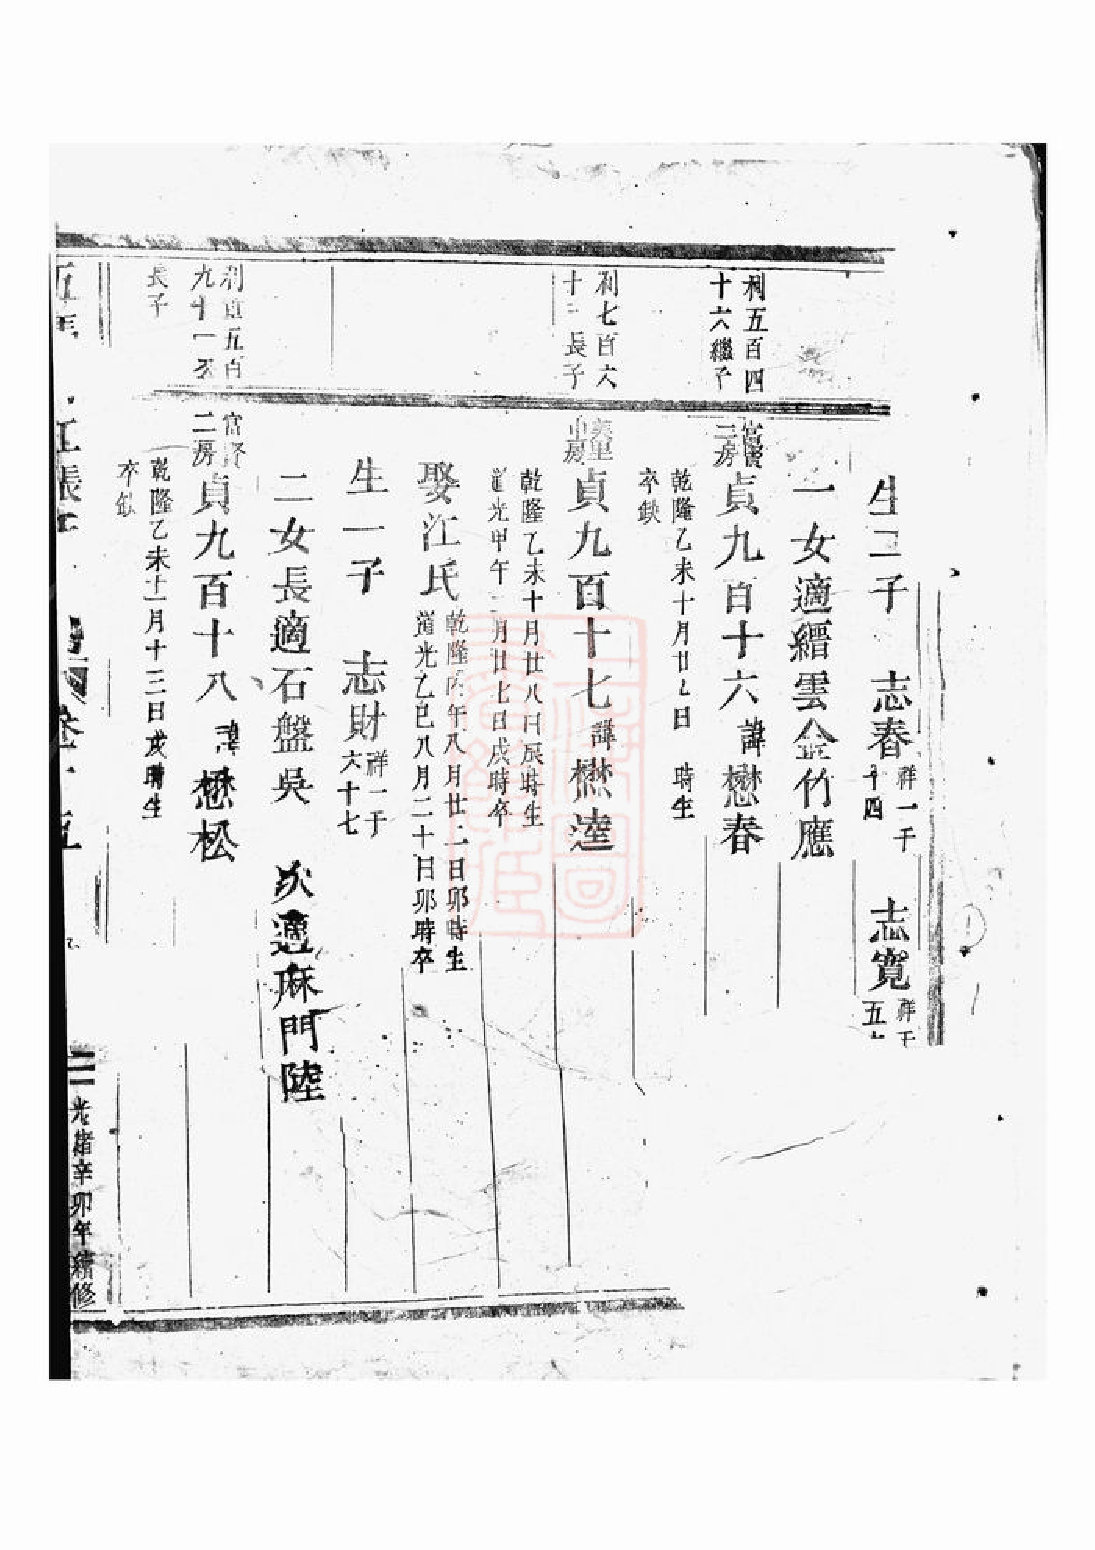 生二子 志春 祥一千 十四 志寬
一女適縉雲金竹應
利五百四
十六繼子
二房
貞九百十六 諱懋春
乾隆乙未十月廿 日 時生
卒缺
利七百六
十二長子
貞九百十七 諱懋達
乾隆乙未十月廿八日辰時生
道光甲午二月廿七日戌時卒
娶江氏
乾隆丙午八月廿二日卯時生
道光乙巳八月二十日卯時卒
生一子 志財 祥一千
六十七
二女長適石盤吳 次適麻門陸
利貞五百
九十一公
長子
二房
貞九百十八 諱懋松
乾隆乙未十一月十三日戌時生
卒缺
卷十五
光緒辛卯年續修